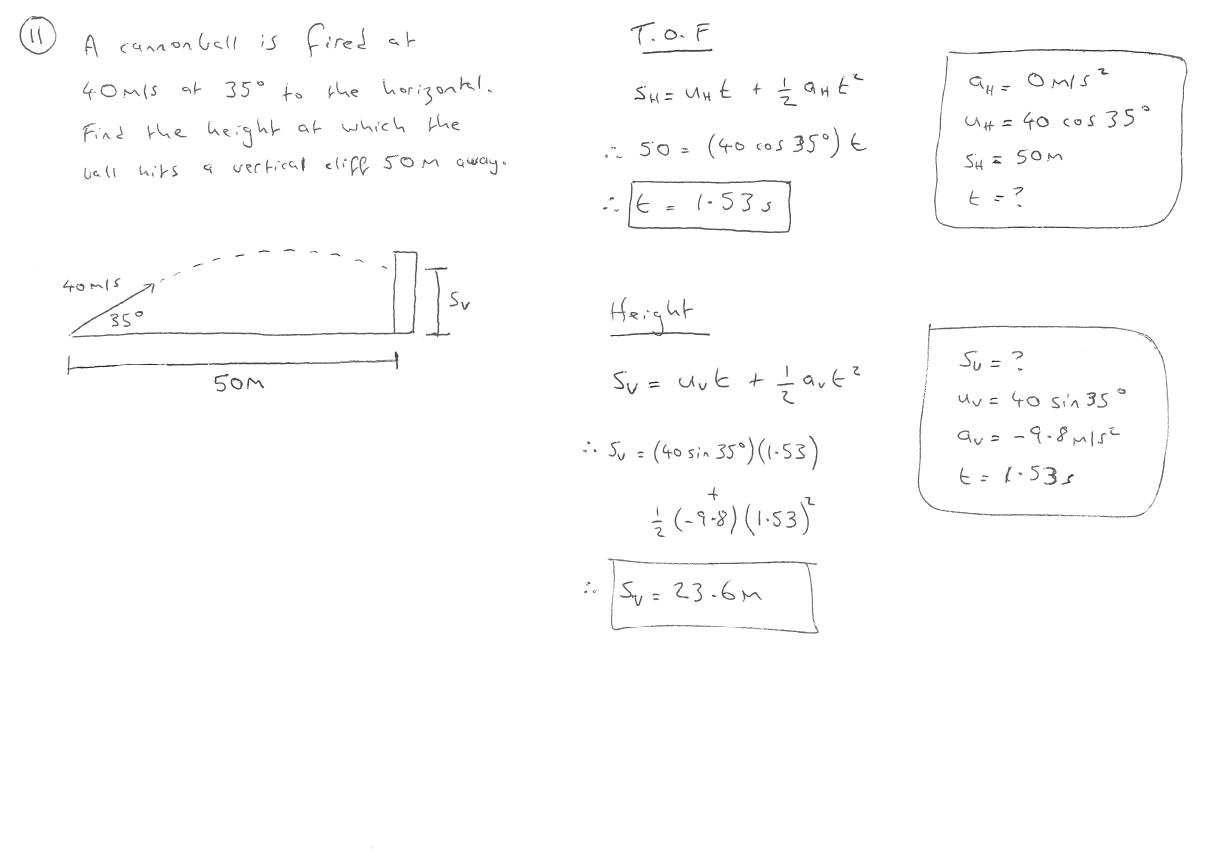 11
A cannonball is fired at
40m/s at 35° to the horizontal.
Find the height at which the
ball hits a vertical cliff 50m away.
40m/s
35°
Sv
50m
T.O.F
SH = uH t + 1/2 aH t²
∴ 50 = (40 cos 35°) t
∴ t = 1.53s
aH = 0m/s²
uH = 40 cos 35°
SH = 50m
t = ?
Height
Sv = uv t + 1/2 av t²
∴ Sv = (40 sin 35°)(1.53)
+
1/2 (-9.8)(1.53)²
∴ Sv = 23.6m
Sv = ?
uv = 40 sin 35°
av = -9.8m/s²
t = 1.53s